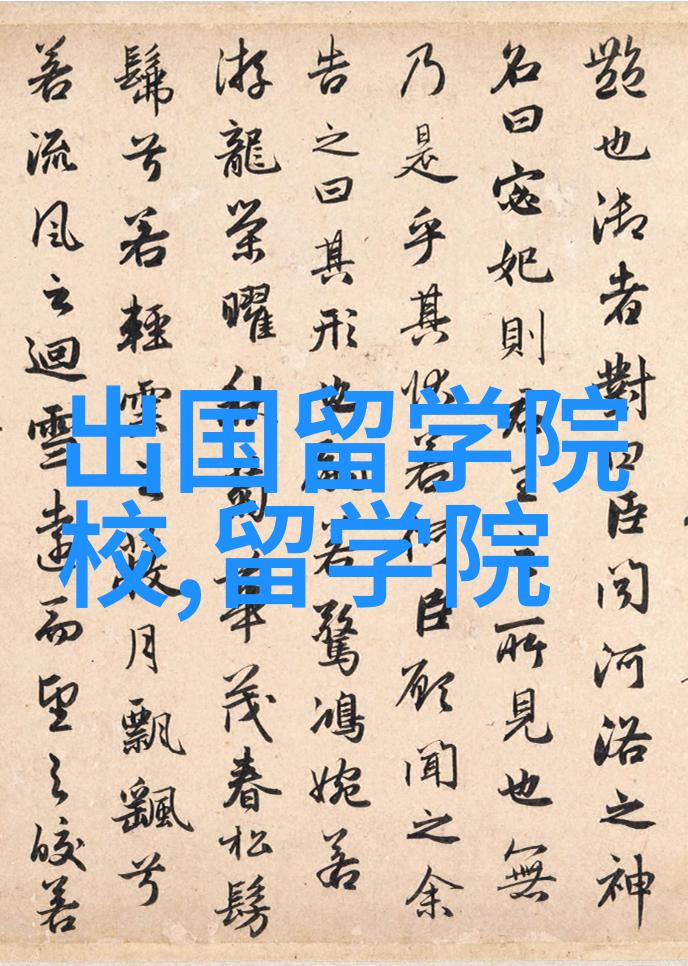 艷也御者對曰臣聞河洛之神
名曰宓妃則君王之所見也無
乃是乎其狀若何臣願聞之余
告之曰其形也翩若驚鴻婉若
游龍榮曜秋菊華茂春松髣
髴兮若輕雲之蔽月飄颻兮
若流風之迴雪遠而望之皎若
出国留学院
校,留学院